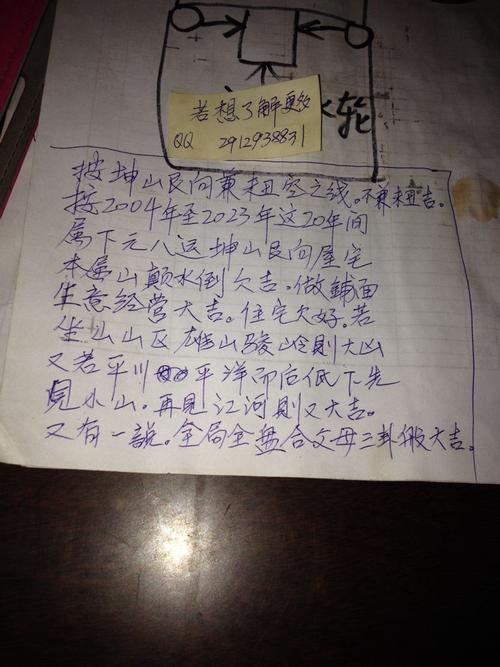 若想了解更多
QQ 2912938831
轮
按坤山艮向兼
空之线。不兼
吉。
按2004年至2023年这20年间
属下元八运坤山艮向屋宅
本属山颠水倒欠吉。做鋪面
生意经营大吉。住宅欠好。若
坐山山区雄山骏岭則大凶
又若平川平洋而后低下先
見小山。再見江河則又大吉。
又有一説。全局全盘合父母三卦僌大吉。